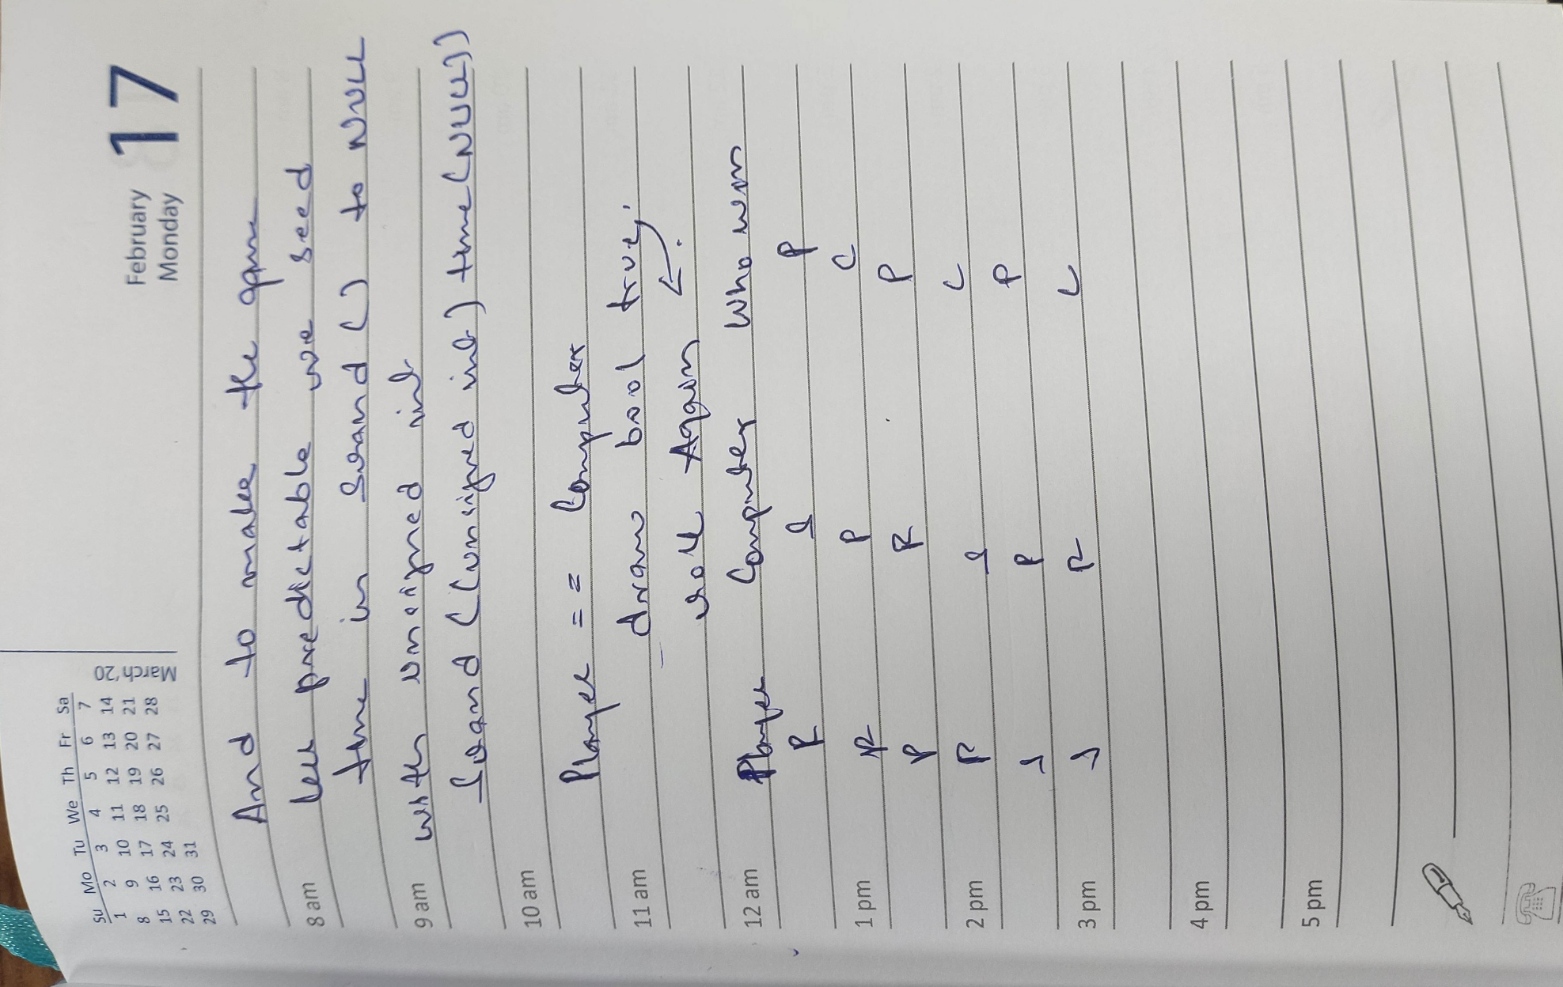 Su Mo Tu We Th Fr Sa
1 2 3 4 5 6 7
8 9 10 11 12 13 14
15 16 17 18 19 20 21
22 23 24 25 26 27 28
29 30 31
March '20
February
Monday
17
And to make the game
8 am less predictable we seed
time in Srand () to NULL
9 am with unsigned int
Srand ((unsigned int) time (NULL))
10 am
Player == Computer
11 am draw bool true,
roll Again
12 am Player Computer Who won
R S P
1 pm R P C
P R P
2 pm P S C
S P P
3 pm S R C
4 pm
5 pm